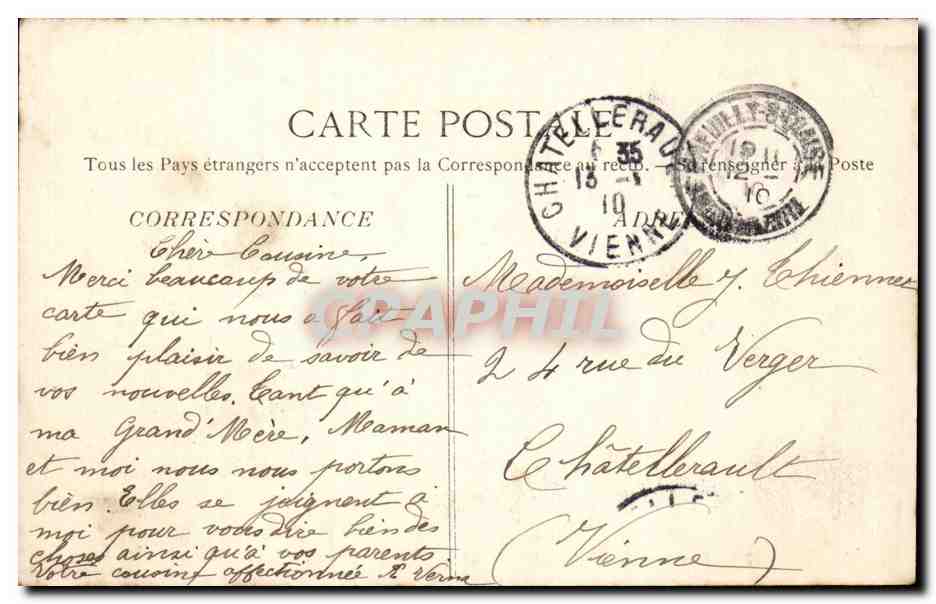 CARTE POSTALE
Tous les Pays étrangers n'acceptent pas la Correspondance au recto. — Se renseigner à la Poste
CORRESPONDANCE
Chère Cousine,
Merci beaucoup de votre
carte qui nous a fait
bien plaisir de savoir de
vos nouvelles. Tant qu'à
ma Grand'Mère, Maman
et moi nous nous portons
bien. Elles se joignent à
moi pour vous dire bien des
choses ainsi qu'à vos parents
Votre cousine affectionnée
ADRE
Mademoiselle J. Thiennet
24 rue du Verger
Châtellerault
(Vienne)
CHATELLERAULT
35
13 -1
10
VIENNE
NEUILLY-S-SEINE
12 -1
10
CRAPHIL